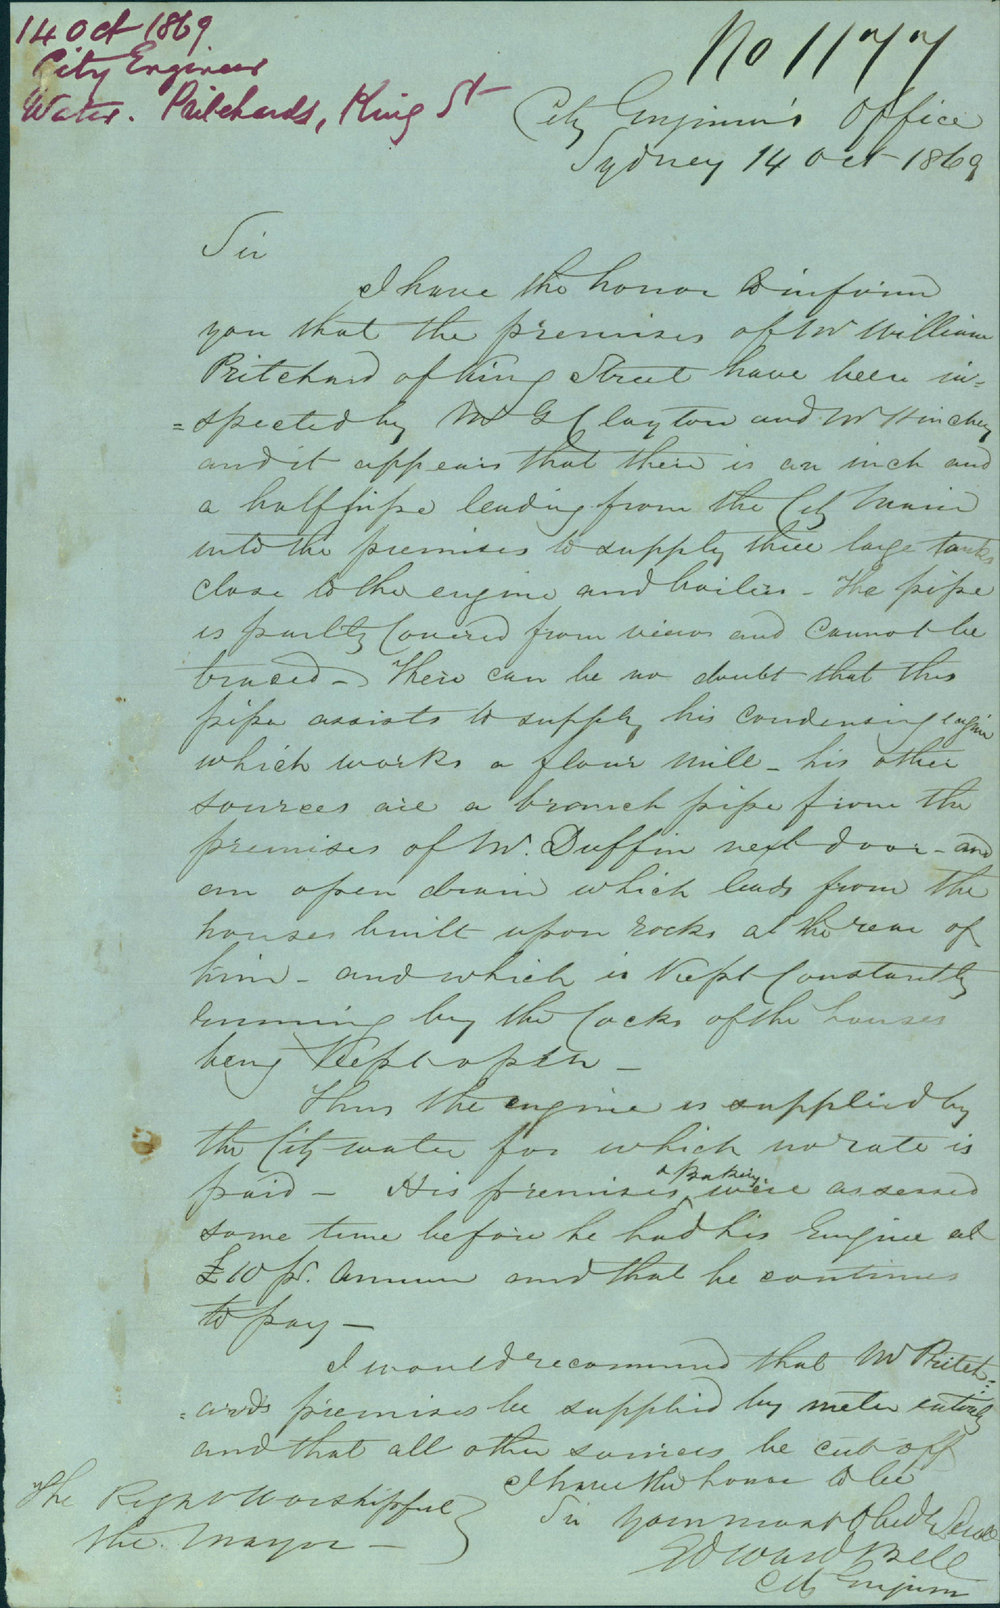 14 Oct 1869
City Engineer
Water. Pritchards, King St
No 1177
City Engineer's Office
Sydney 14 Oct 1869
Sir
I have the honor to inform
you that the premises of Mr William
Pritchard of King Street have been in=
=spected by Mr G Clayton and Mr Hinchey
and it appears that there is an inch and
a half pipe leading from the City Main
into the premises to supply three large tanks
close to the engine and boilers - The pipe
is partly covered from view and cannot be
traced - There can be no doubt that this
pipe assists to supply his condensing engine
which works a flour mill - his other
sources are a branch pipe from the
premises of Mr. Duffin next door - and
an open drain which leads from the
houses built upon rocks at the rear of
him - and which is kept constantly
running by the cocks of the houses
being kept open -
Thus the engine is supplied by
the City water for which no rate is
paid - His premises & Bakery were assessed
some time before he had his Engine at
£10 pr. annum and that he continues
to pay -
I would recommend that Mr Pritch=
=ard's premises be supplied by meter entirely
and that all other sources be cut off
I have the honor to be
Sir your most Obedt Servt
Edward Bell
City Engineer
The Right Worshipful
the Mayor -